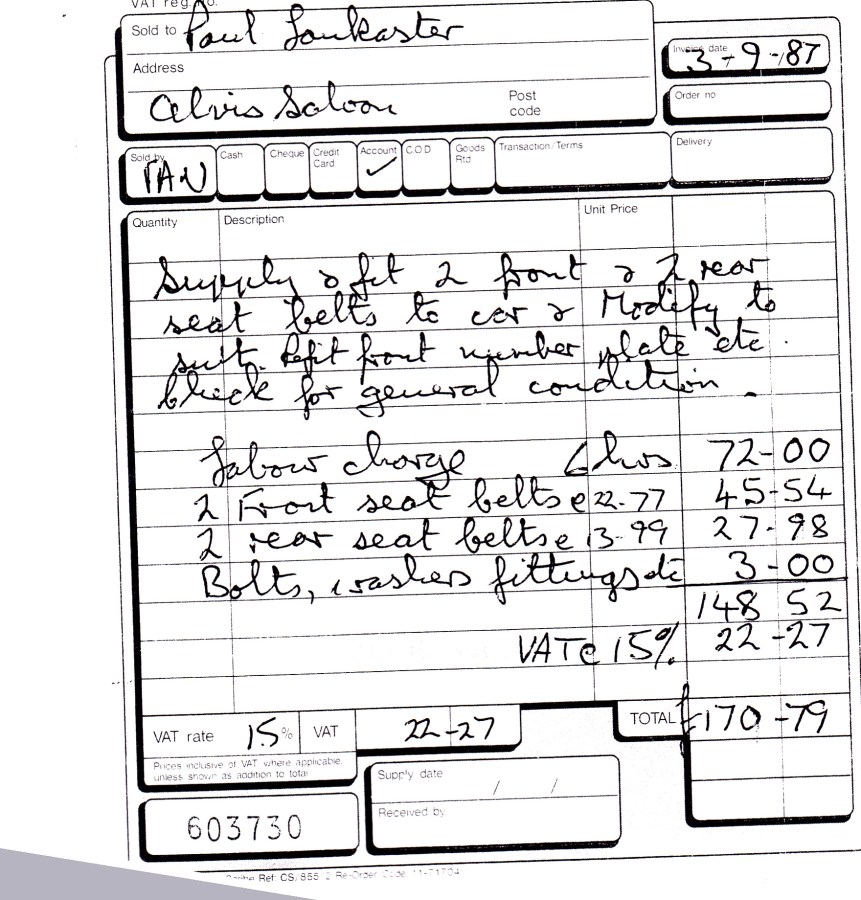 VAT reg. No.
Sold to Paul Lonkaster
Invoice date 3-9-87
Address
Alvis Saloon
Post code
Order no
Sold by IAN Cash Cheque Credit Card Account ✓ C O D Goods Rtd Transaction/Terms Delivery
Quantity Description Unit Price
Supply & fit 2 front & 2 rear
seat belts to car & Modify to
suit. Refit front number plate etc.
Check for general condition.
Labour charge 6 hrs 72-00
2 Front seat belts @ 22-77 45-54
2 rear seat belts @ 13-99 27-98
Bolts, washers fittings etc 3-00
148 52
VAT @ 15% 22-27
TOTAL £170-79
VAT rate 15% VAT 22-27
Prices inclusive of VAT where applicable,
unless shown as addition to total
Supply date / /
Received by
603730
Ref: CS/855 2 Re-Order Code